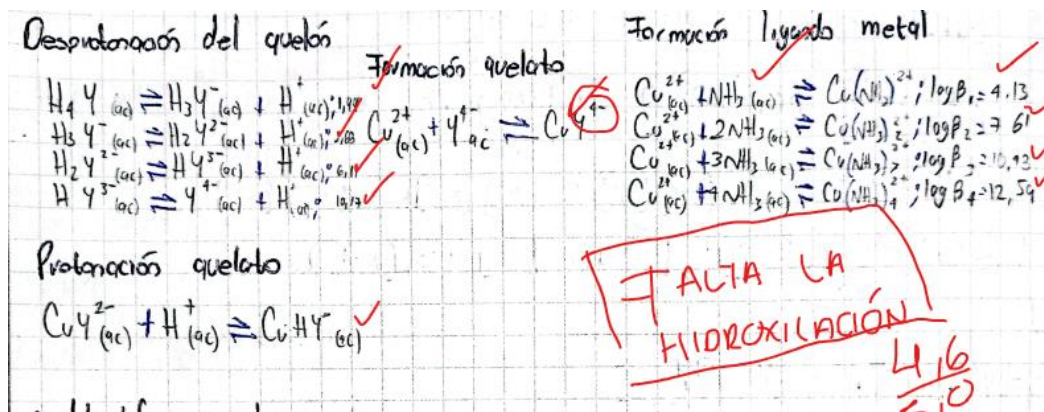 Desprotonación del quelón
H₄Y (ac) ⇌ H₃Y⁻ (ac) + H⁺ (ac); 1,99
H₃Y⁻ (ac) ⇌ H₂Y²⁻ (ac) + H⁺ (ac);
H₂Y²⁻ (ac) ⇌ HY³⁻ (ac) + H⁺ (ac); 6,11
HY³⁻ (ac) ⇌ Y⁴⁻ (ac) + H⁺ (ac); 10,17
Formación quelato
Cu²⁺ (ac) + Y⁴⁻ ac ⇌ CuY⁴⁻
Formación ligando metal
Cu²⁺ (ac) + NH₃ (ac) ⇌ Cu(NH₃)²⁺; log β₁ = 4,13
Cu²⁺ (ac) + 2NH₃ (ac) ⇌ Cu(NH₃)₂²⁺; log β₂ = 7,61
Cu²⁺ (ac) + 3NH₃ (ac) ⇌ Cu(NH₃)₃²⁺; log β₃ =
Cu²⁺ (ac) + 4NH₃ (ac) ⇌ Cu(NH₃)₄²⁺; log β₄ = 12,59
Protonación quelato
CuY²⁻ (ac) + H⁺ (ac) ⇌ CuHY⁻ (ac)
FALTA LA
HIDROXILACIÓN
4,6